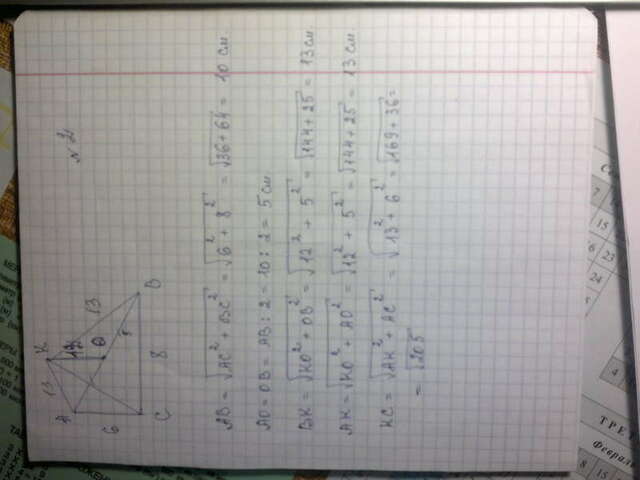 № 2
K
13
12
13
A
O
B
5
6
8
C
AB = √AC² + BC² = √6² + 8² = √36 + 64 = 10 см.
AO = OB = AB : 2 = 10 : 2 = 5 см
BK = √KO² + OB² = √12² + 5² = √144 + 25 = 13 см.
AK = √KO² + AO² = √12² + 5² = √144 + 25 = 13 см.
KC = √AK² + AC² = √13² + 6² = √169 + 36 =
= √205
7
15
6
23
24
5
4
ТРЕ
Февраль
8
15